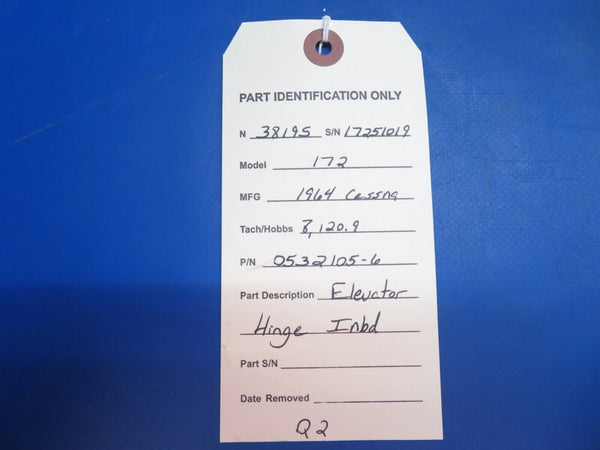 PART IDENTIFICATION ONLY
N 38195 S/N 17251019
Model 172
MFG 1964 Cessna
Tach/Hobbs 8,120.9
P/N 0532105-6
Part Description Elevator
Hinge Inbd
Part S/N
Date Removed
Q2